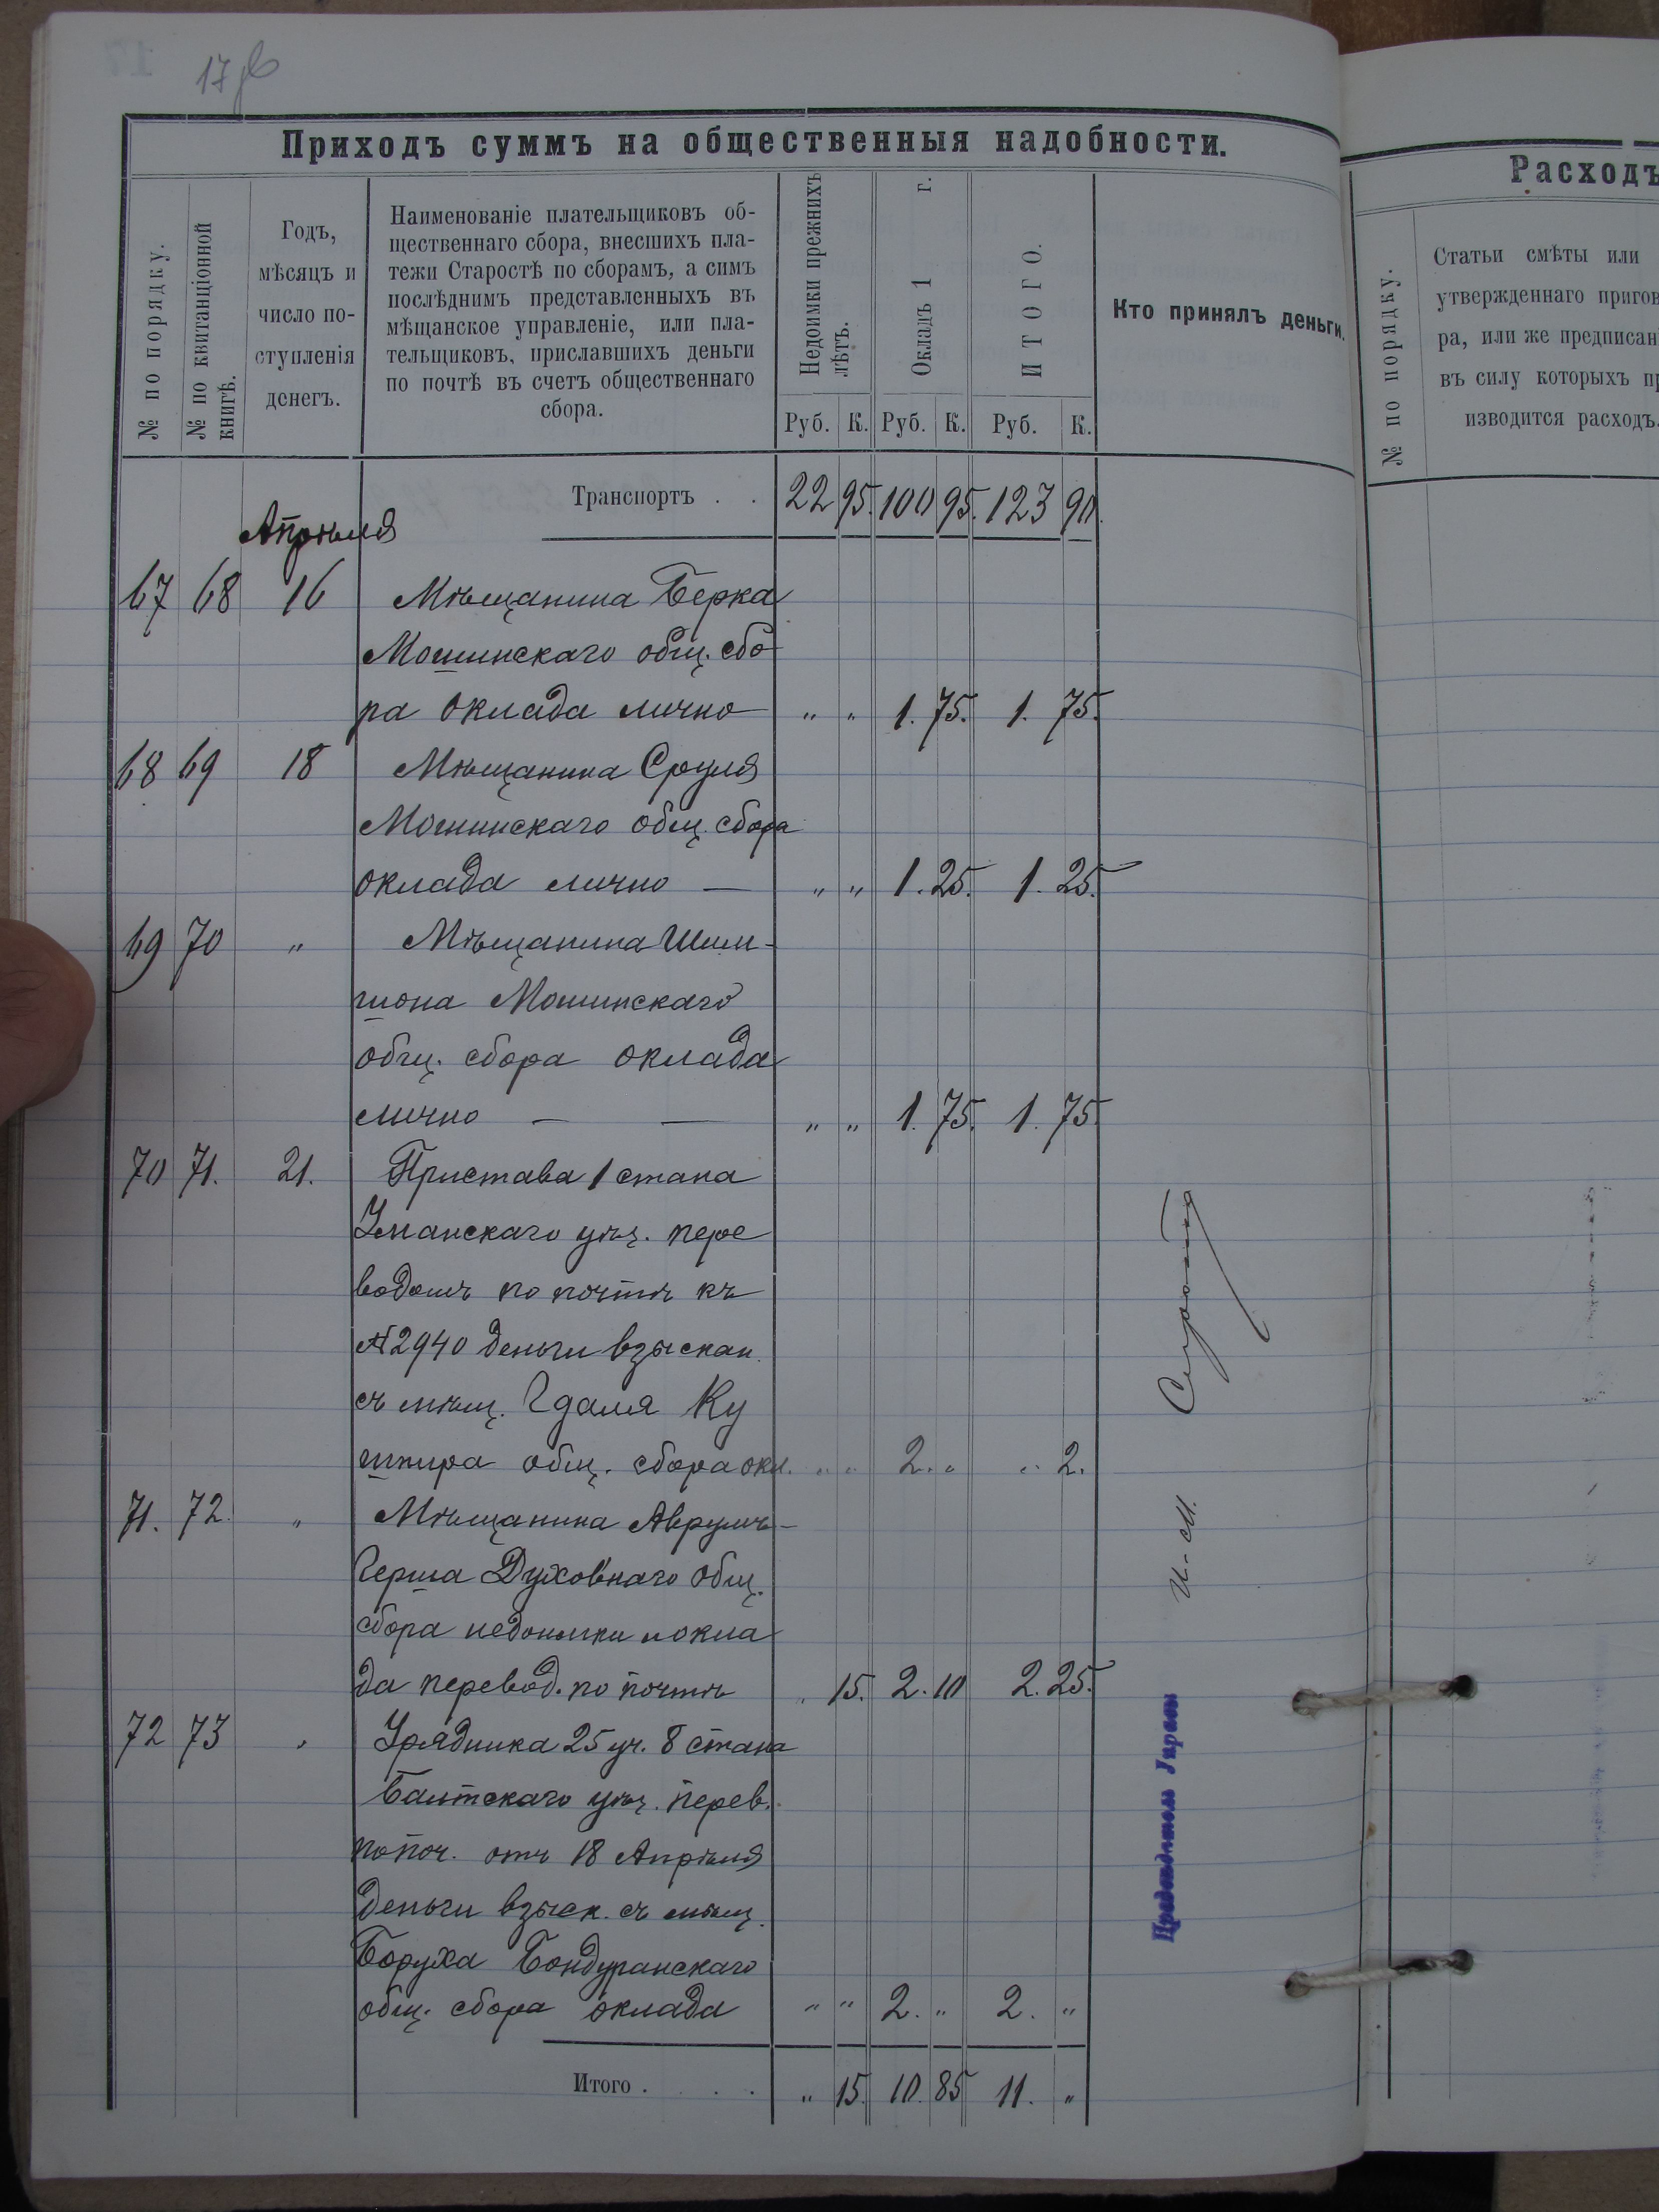 17 об
Приходъ суммъ на общественныя надобности.
№ по порядку.
№ по квитанціонной книгѣ.
Годъ,
мѣсяцъ и
число по-
ступленія
денегъ.
Наименованіе плательщиковъ об-
щественнаго сбора, внесшихъ пла-
тежи Старостѣ по сборамъ, а симъ
послѣднимъ представленныхъ въ
мѣщанское управленіе, или пла-
тельщиковъ, приславшихъ деньги
по почтѣ въ счетъ общественнаго
сбора.
Недоимки прежнихъ лѣтъ.
Окладъ 1 г.
ИТОГО.
Руб. К. Руб. К. Руб. К.
Кто принялъ деньги.
Транспортъ . . 22 95. 100 95. 123 90.
Апрѣля
67 68 16 Мѣщанина Берка
Мошинскаго общ. сбо
ра оклада лично " " 1. 75. 1. 75.
68 69 18 Мѣщанина Сруля
Мошинскаго общ. сбора
оклада лично — " " 1. 25. 1. 25.
69 70 " Мѣщанина Шим-
шона Мошинскаго
общ. сбора оклада
лично — — " " 1. 75. 1. 75.
70 71. 21. Пристава 1 стана
Уманскаго уѣз. пере
водомъ по почтѣ къ
№ 2940 деньги взыскан.
съ мѣщ. Гдаля Ку
шнира общ. сбора окл. " " 2. " " 2.
71. 72. " Мѣщанина Аврумъ-
Герша Духовнаго общ.
сбора недоимки и окла
да перевод. по почтѣ " 15. 2. 10 2. 25.
72 73 " Урядника 25 уч. 8 стана
Балтскаго уѣз. перев.
по поч. отъ 18 Апрѣля
деньги взыск. съ мѣщ.
Боруха Бондуранскаго
общ. сбора оклада " " 2. " 2. "
Итого . . . . " 15. 10. 85 11. "
И. М.
Расходъ
№ по порядку.
Статьи смѣты или
утвержденнаго пригов
ра, или же предписан
въ силу которыхъ пр
изводится расходъ.